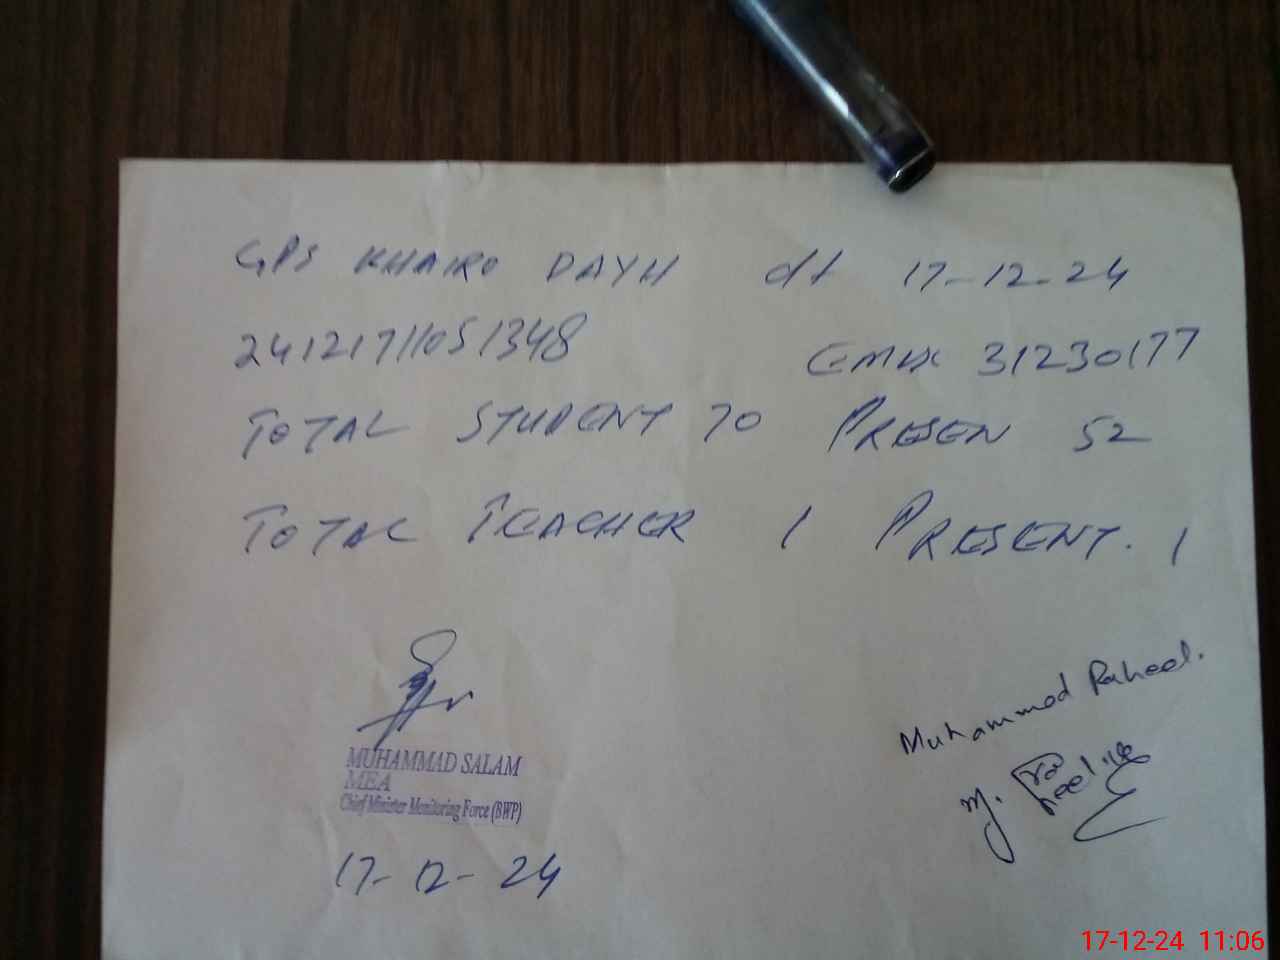 GPS KHAIRO DAYH dt 17-12-24
24121711051348 EMIX 31230177
TOTAL STUDENT 70 PRESEN 52
TOTAL TEACHER 1 PRESENT. 1
Muhammad Raheel.
MUHAMMAD SALAM
MEA
Chief Minister Monitoring Force (BWP)
17-12-24
17-12-24 11:06